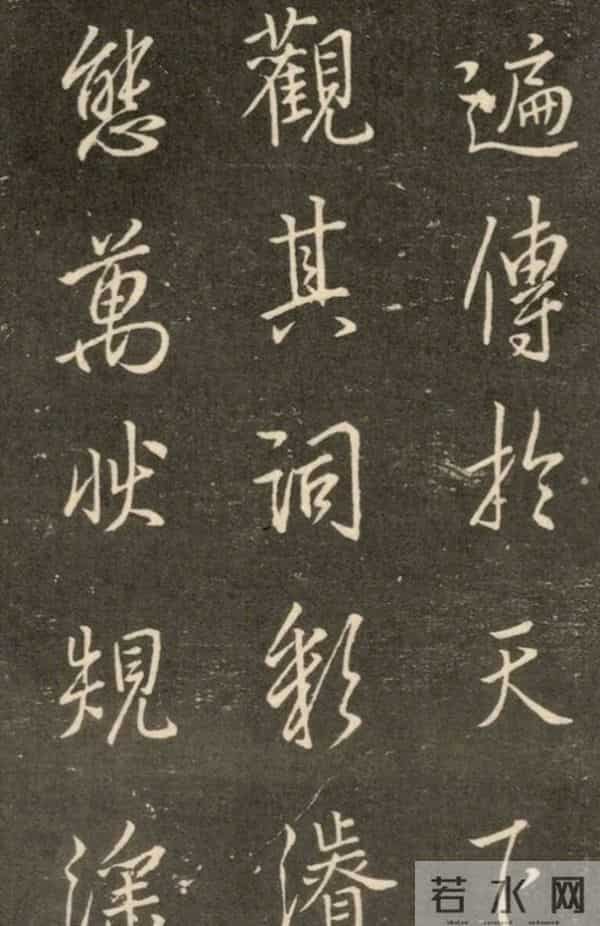 遍傳於天下
觀其詞彩濬
態萬狀規深
若水网